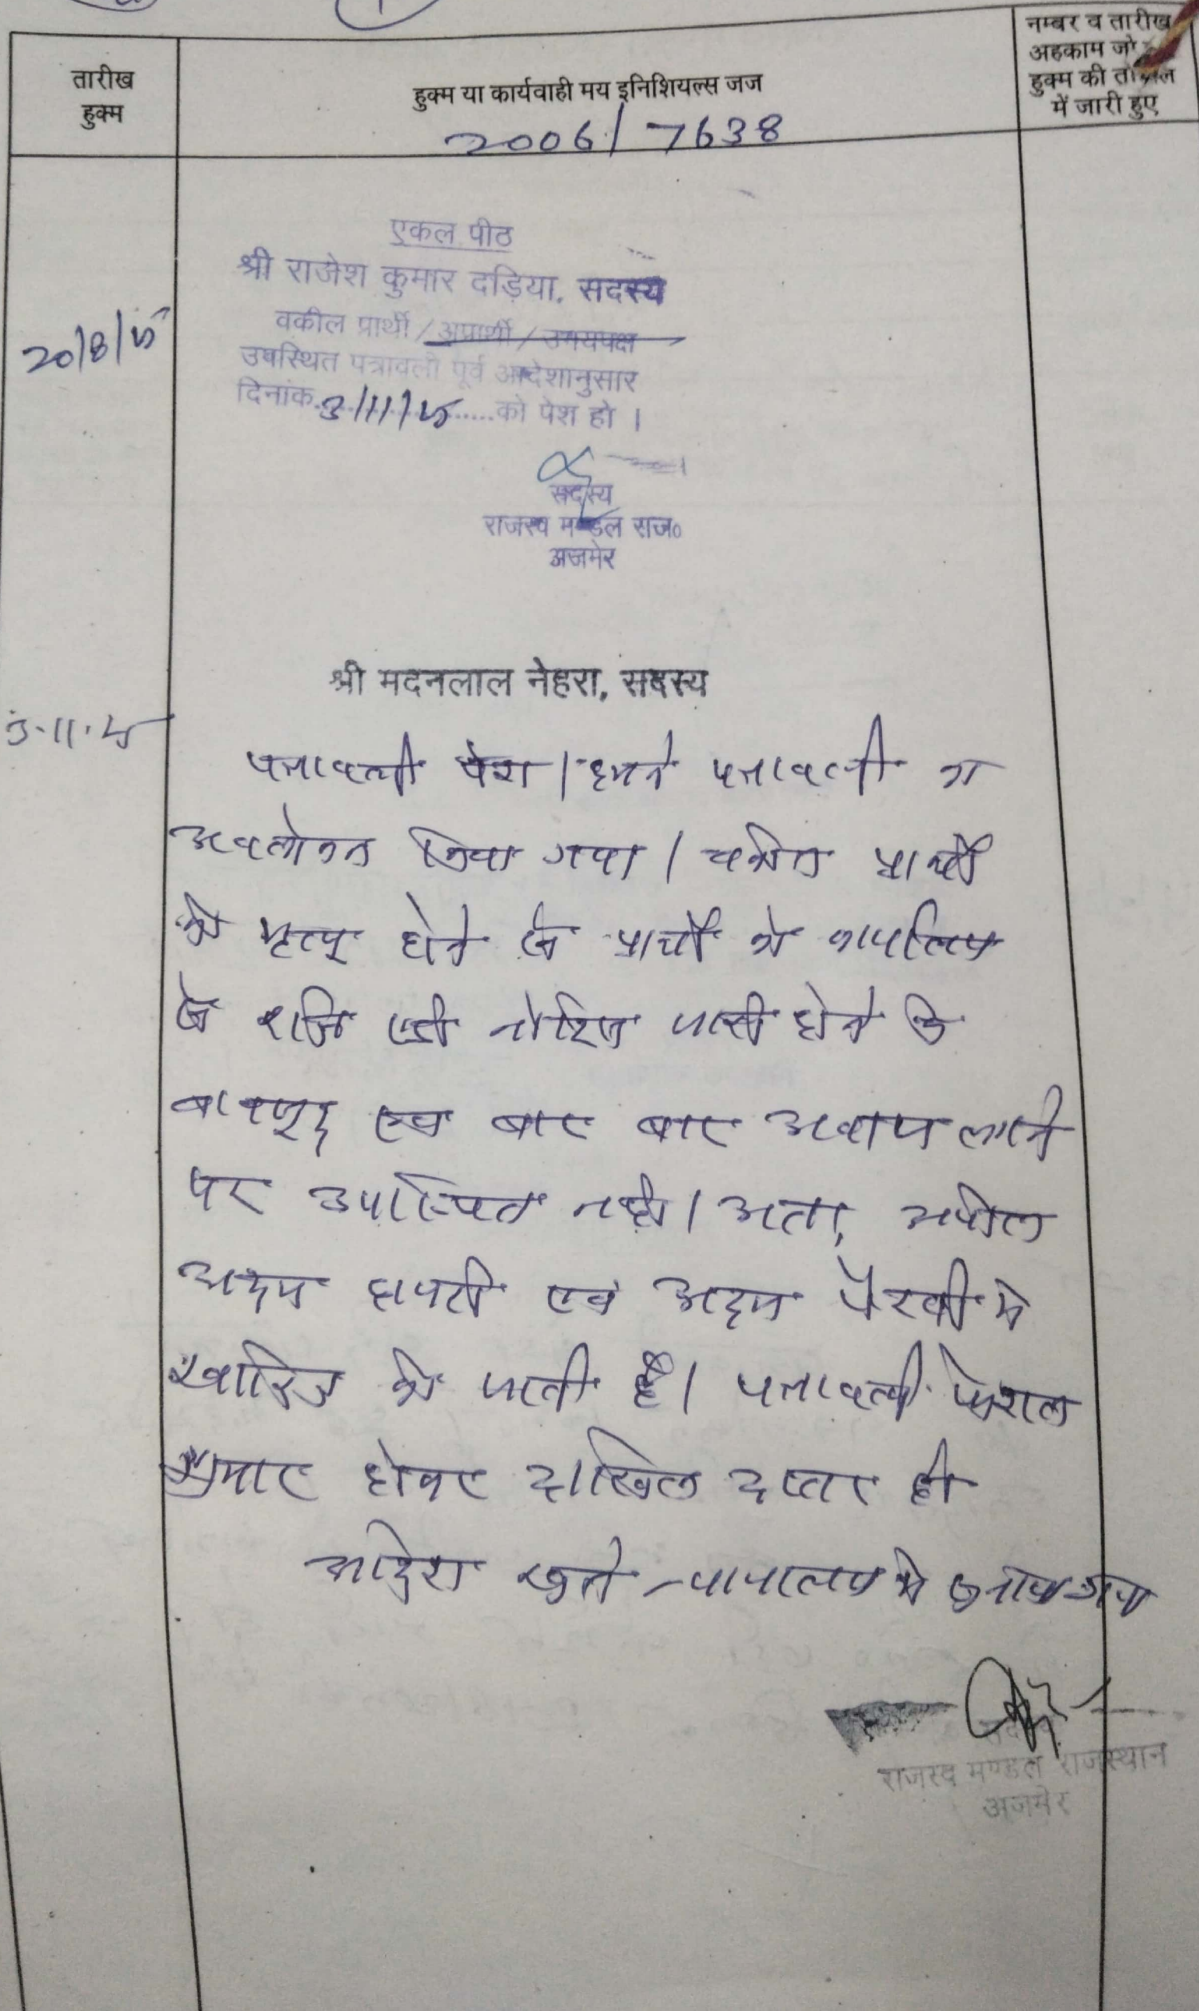 तारीख
हुक्म
हुक्म या कार्यवाही मय इनिशियल्स जज
नम्बर व तारीख
अहकाम जो
हुक्म की
में जारी हुए
2006/7638
एकल पीठ
श्री राजेश कुमार दड़िया, सदस्य
20/8/25
वकील प्रार्थी/अप्रार्थी/उभयपक्ष
उपस्थित पत्रावली पूर्व आदेशानुसार
दिनांक 3/11/25 को पेश हो ।
सदस्य
राजस्व मण्डल राज०
अजमेर
श्री मदनलाल नेहरा, सदस्य
3.11.25
पत्रावली पेश। हमने पत्रावली का
अवलोकन किया गया। वकील प्रार्थी
की मृत्यु होने के प्रार्थी को
के रजि एडी नोटिस जारी होने के
बावजूद एवं बार बार आवाज लगाने
पर उपस्थित नही। अतः अपील
अदम हाजरी एवं अदम पैरवी मे
खारिज की जाती है। पत्रावली फैसल
शुमार होकर दाखिल दफ्तर हो
आदेश खुले न्यायालय मे सुनाया गया
राजस्व मण्डल राजस्थान
अजमेर